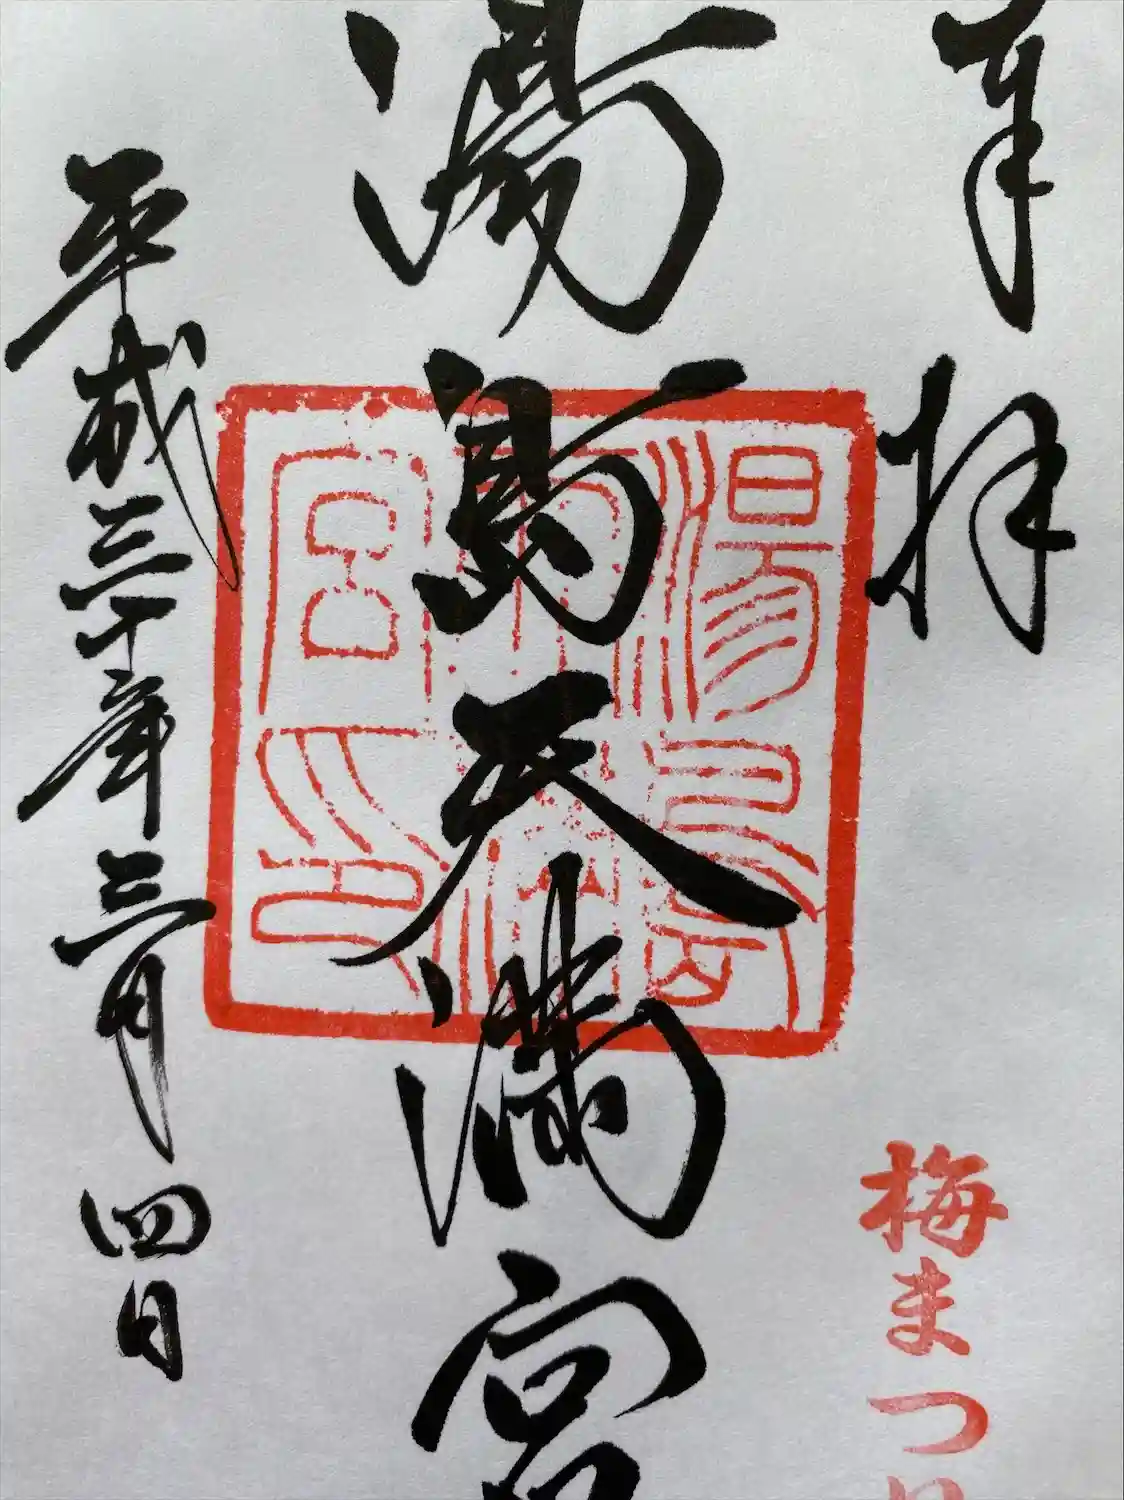 奉拝
湯島天満宮
平成三十年三月四日
梅まつり
湯島
天神
宮印